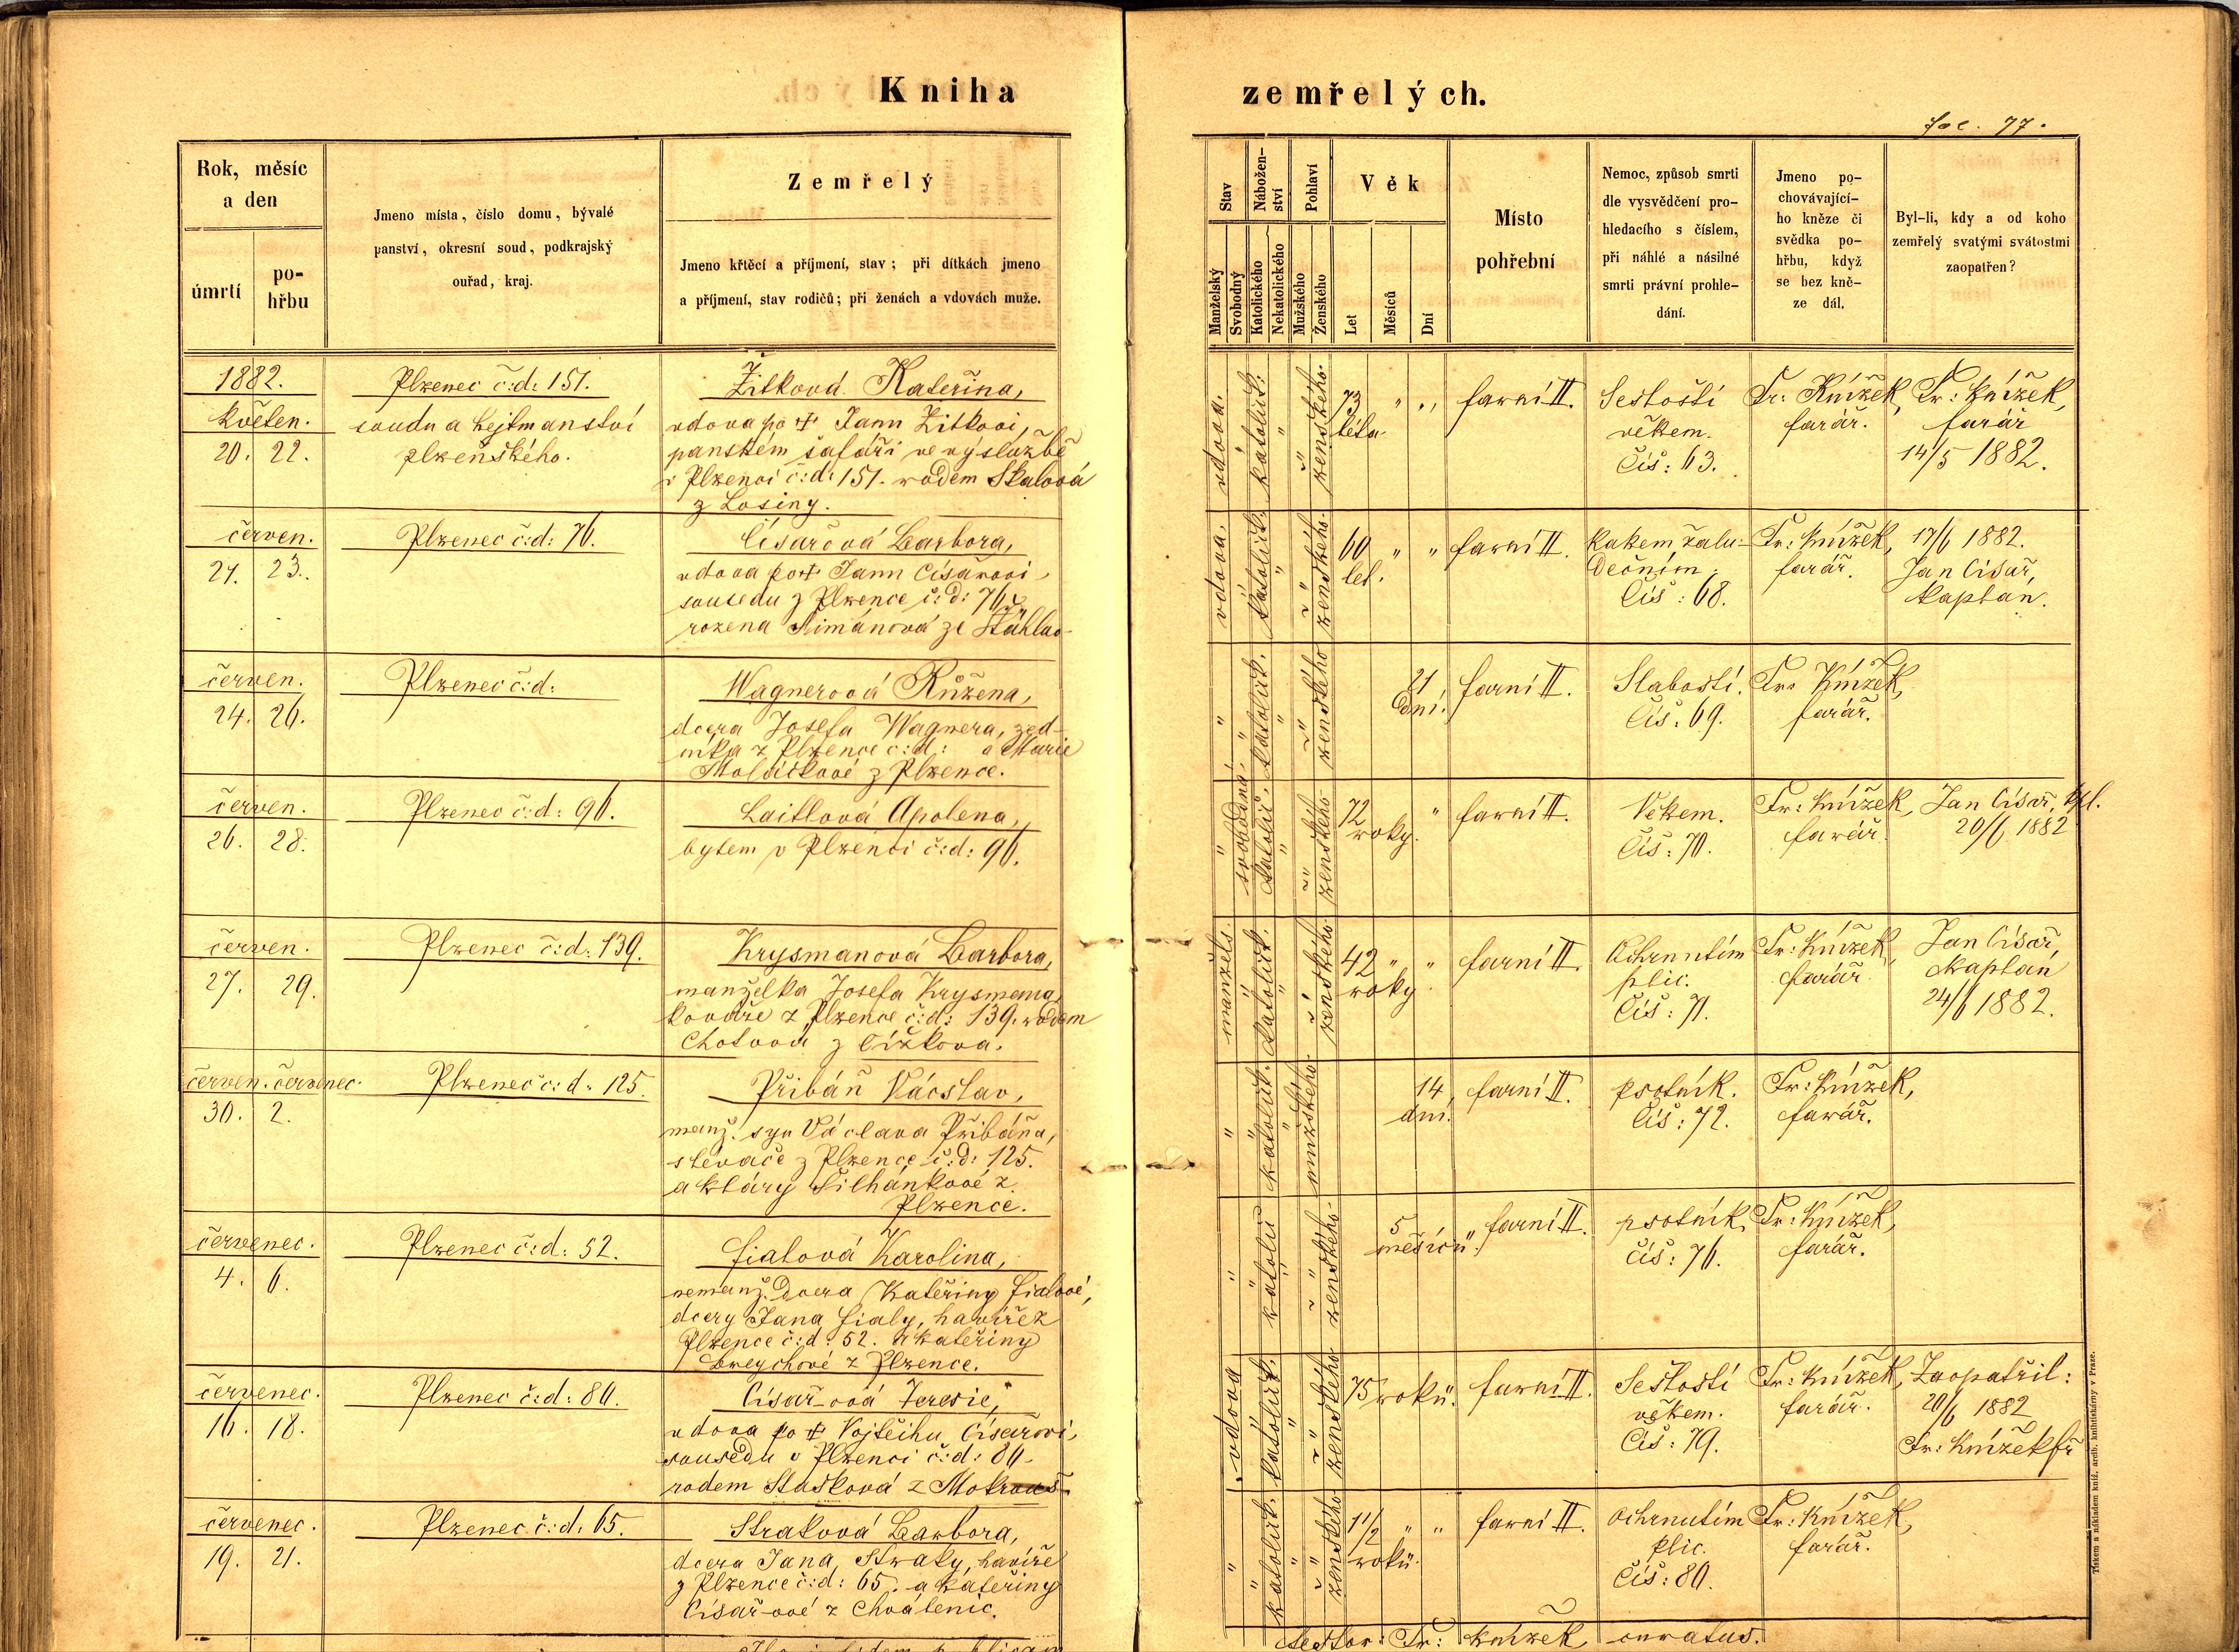 Kniha
zemřelých.
fol. 77.
Rok, měsíc
a den
úmrtí
po-
hřbu
Jmeno místa, číslo domu, bývalé
panství, okresní soud, podkrajský
ouřad, kraj.
Zemřelý
Jmeno křtěcí a příjmení, stav; při dítkách jmeno
a příjmení, stav rodičů; při ženách a vdovách muže.
Stav
Manželský
Svobodný
Nábožen-
ství
Katolického
Nekatolického
Pohlaví
Mužského
Ženského
Věk
Let
Měsíců
Dní
Místo
pohřební
Nemoc, způsob smrti
dle vysvědčení pro-
hledacího s číslem,
při náhlé a násilné
smrti právní prohle-
dání.
Jmeno po-
chovávající-
ho kněze či
svědka po-
hřbu, když
se bez kně-
ze dál.
Byl-li, kdy a od koho
zemřelý svatými svátostmi
zaopatřen?
1882.
květen.
20. 22.
Plzenec č:d: 151.
soudu a hejtmanství
plzeňského.
Žitková Kateřina,
vdova po † Janu Žitkovi,
panském šafáři ve výslužbě
v Plzenci č:d: 151. rodem Skalová
z Losiny.
vdova.
katolick:
ženského.
73 " "
léta
farní II.
Sešlostí
věkem.
Čís: 63.
Fr: Knížek,
farář.
Fr: Knížek,
farář
14/5 1882.
červen.
21. 23.
Plzenec č:d: 76.
Císařová Barbora,
vdova po † Janu Císařovi
sousedu z Plzence č:d: 76
rozená Šimánová ze Šťáhlav
vdova.
katolick.
ženského.
60 " "
let.
farní II.
Rakem žalu-
dečním.
Čís: 68.
Fr: Knížek,
farář.
17/6 1882.
Jan Císař,
kaplan.
červen.
24. 26.
Plzenec č:d:
Wagnerová Růžena,
dcera Josefa Wagnera, zed-
níka z Plzence č:d: a Marie
Moláčkové z Plzence.
"
katolick.
ženského
21
dní.
farní II.
Slabostí.
Čís: 69.
Fr: Knížek,
farář.
červen.
26. 28.
Plzenec č:d: 96.
Laitlová Apolena,
bytem v Plzenci č:d: 96.
svobodná
katolic.
ženského
72 "
roky.
farní II.
Věkem.
Čís: 70.
Fr: Knížek,
farář.
Jan Císař, kpl.
20/6 1882
červen.
27. 29.
Plzenec č:d: 139.
Krysmanová Barbora,
manželka Josefa Krysmana,
kováře z Plzence č:d: 139. rodem
Chotová z Čížkova.
manžels.
katolick.
ženského.
42 " "
roky.
farní II.
Ochrnutím
plic.
Čís: 71.
Fr: Knížek,
farář
Jan Císař,
kaplan
24/6 1882.
červen. červenec.
30. 2.
Plzenec č:d: 125.
Přibáň Václav,
manž. syn Václava Přibáňa,
slévače z Plzence č:d: 125.
a Kláry Šilhánkové z
Plzence.
"
katolick.
mužského.
14
dní.
farní II.
psotník.
Čís: 72.
Fr: Knížek,
farář.
červenec.
4. 6.
Plzenec č:d: 52.
Fialová Karolina,
nemanž. dcera Kateřiny Fialové,
dcery Jana Fialy, havíře z
Plzence č:d: 52. a Kateřiny
z Plzence.
"
katolic
ženského.
5 "
měsíců.
farní II.
psotník,
čís: 76.
Fr: Knížek,
farář.
červenec.
16. 18.
Plzenec č:d: 86.
Císařová Teresie,
vdova po † Vojtěchu Císařovi,
sousedu v Plzenci č:d: 86
rodem Stašková z Mokrouš
vdova
katolick.
ženského
75 roků.
farní II.
Sešlostí
věkem.
Čís: 79.
Fr: Knížek,
farář.
Zaopatřil:
20/6 1882
Fr: Knížek fř
červenec.
19. 21.
Plzenec č:d: 65.
Straková Barbora,
dcera Jana Straky, havíře
z Plzence č:d: 65. a Kateřiny
Císařové z Chválenic.
"
katolick.
ženského.
1 1/2 " "
roků.
farní II.
Ochrnutím
plic.
Čís: 80.
Fr: Knížek,
farář.
Testor: Fr: Knížek curatus.
Tiskem a nákladem kníž. arcib. knihtiskárny v Praze.